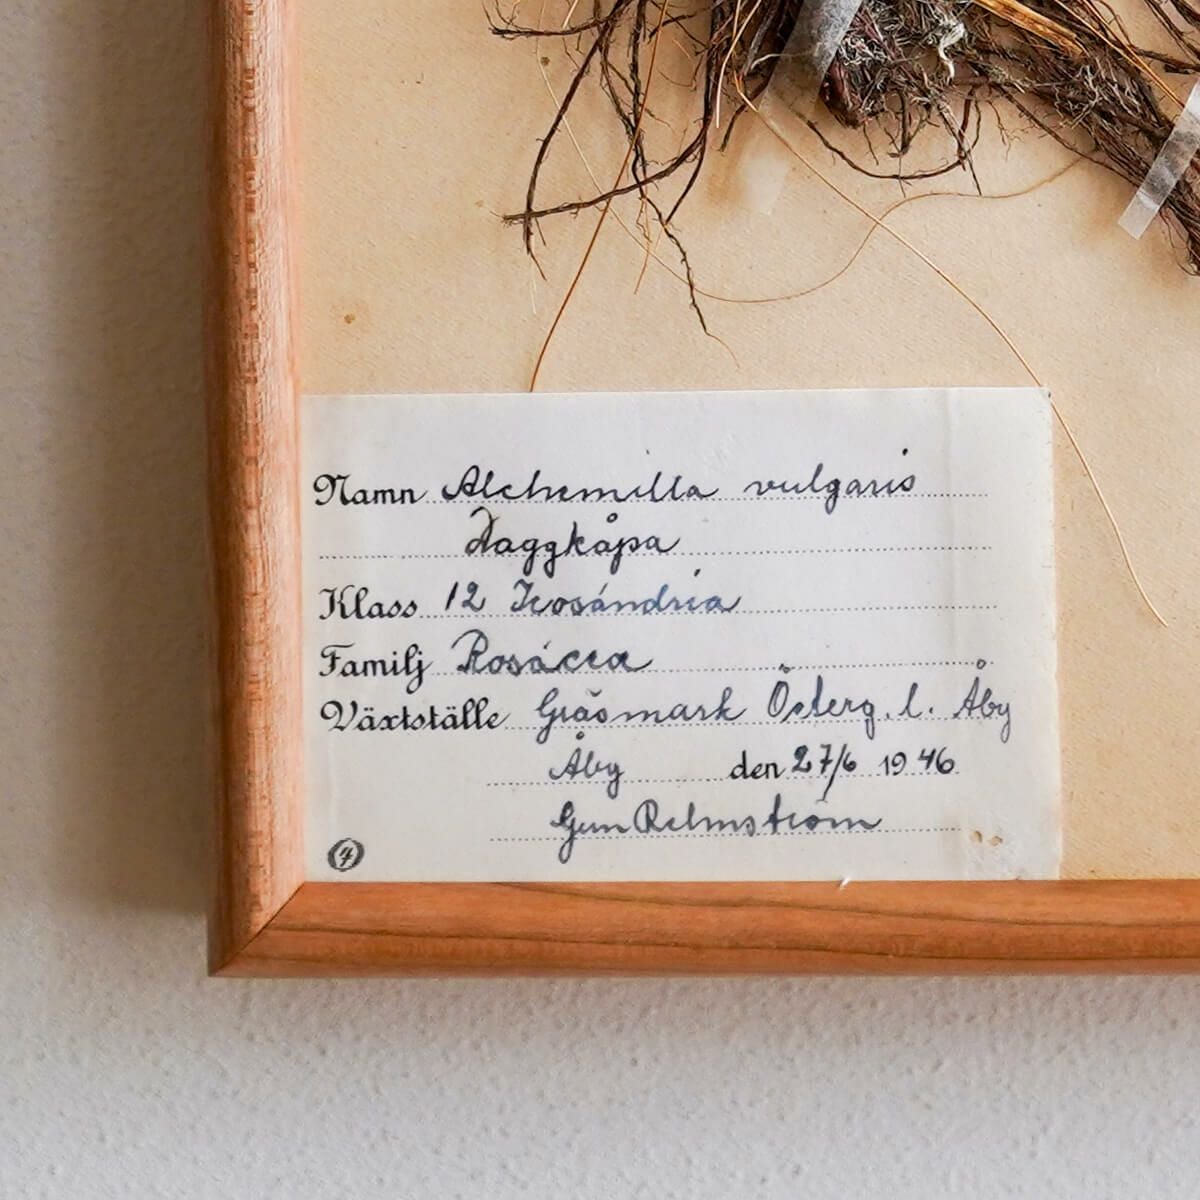 Namn Alchemilla vulgaris
Daggkåpa
Klass 12 Icosándria
Familj Rosácea
Växtställe Gräsmark Österg. l. Åby
Åby den 27/6 1946
Gun
4